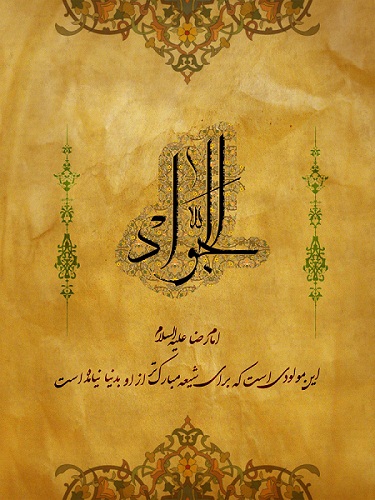 الجواد
امام رضا علیه السلام
این مولودی است که برای شیعه مبارک تر از او بدنیا نیامده است